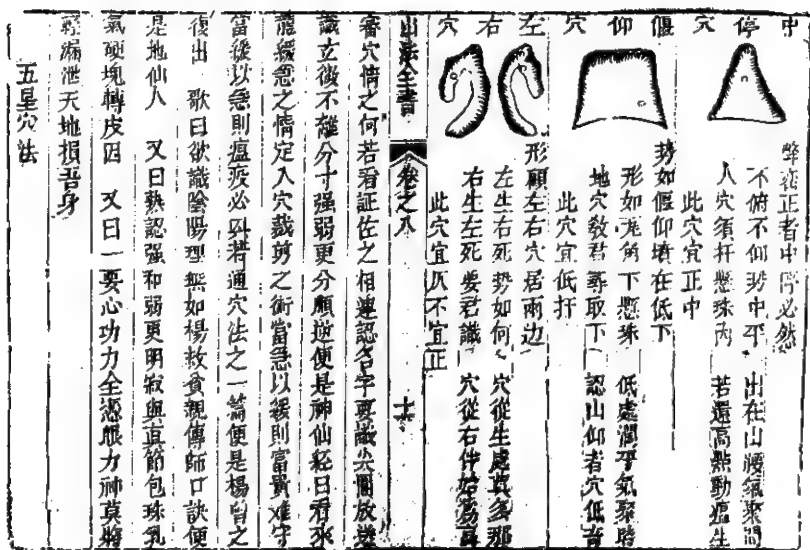 中停穴
弊在正者中停必然
不俯不仰勢中平
出在山腰氣聚
人穴須扦懸珠
若還高點動瘟生
此穴宜正中
偃仰穴
勢如偃仰墳在低下
形如 角下懸珠
低處濶平氣聚
地穴教君尋取下
認山仰者穴低
此穴宜低扦
左右穴
形顧左右穴居兩边
左生右死勢如何
穴從生處 多那
右生左死要君識
穴從右伴
此穴宜仄不宜正
山法全書
卷之八
十六
審穴情之何若看証佐之相連認名字要識尖圓放送
識立微不離分寸强弱更分順逆便是神仙經曰看來
龍緩急之情定入穴裁剪之術當急以緩則富貴难守
當緩以急則瘟疫必 若通穴法之一篇便是楊曾之
復出 歌曰欲識陰陽理無如楊救貧親傳師口訣便
是地仙人 又曰熟認强和弱更明寂與直節包珠乳
氣硬塊轉皮 又曰一要心功力全憑眼力神莫將
輕漏泄天地損吾身
五星穴法